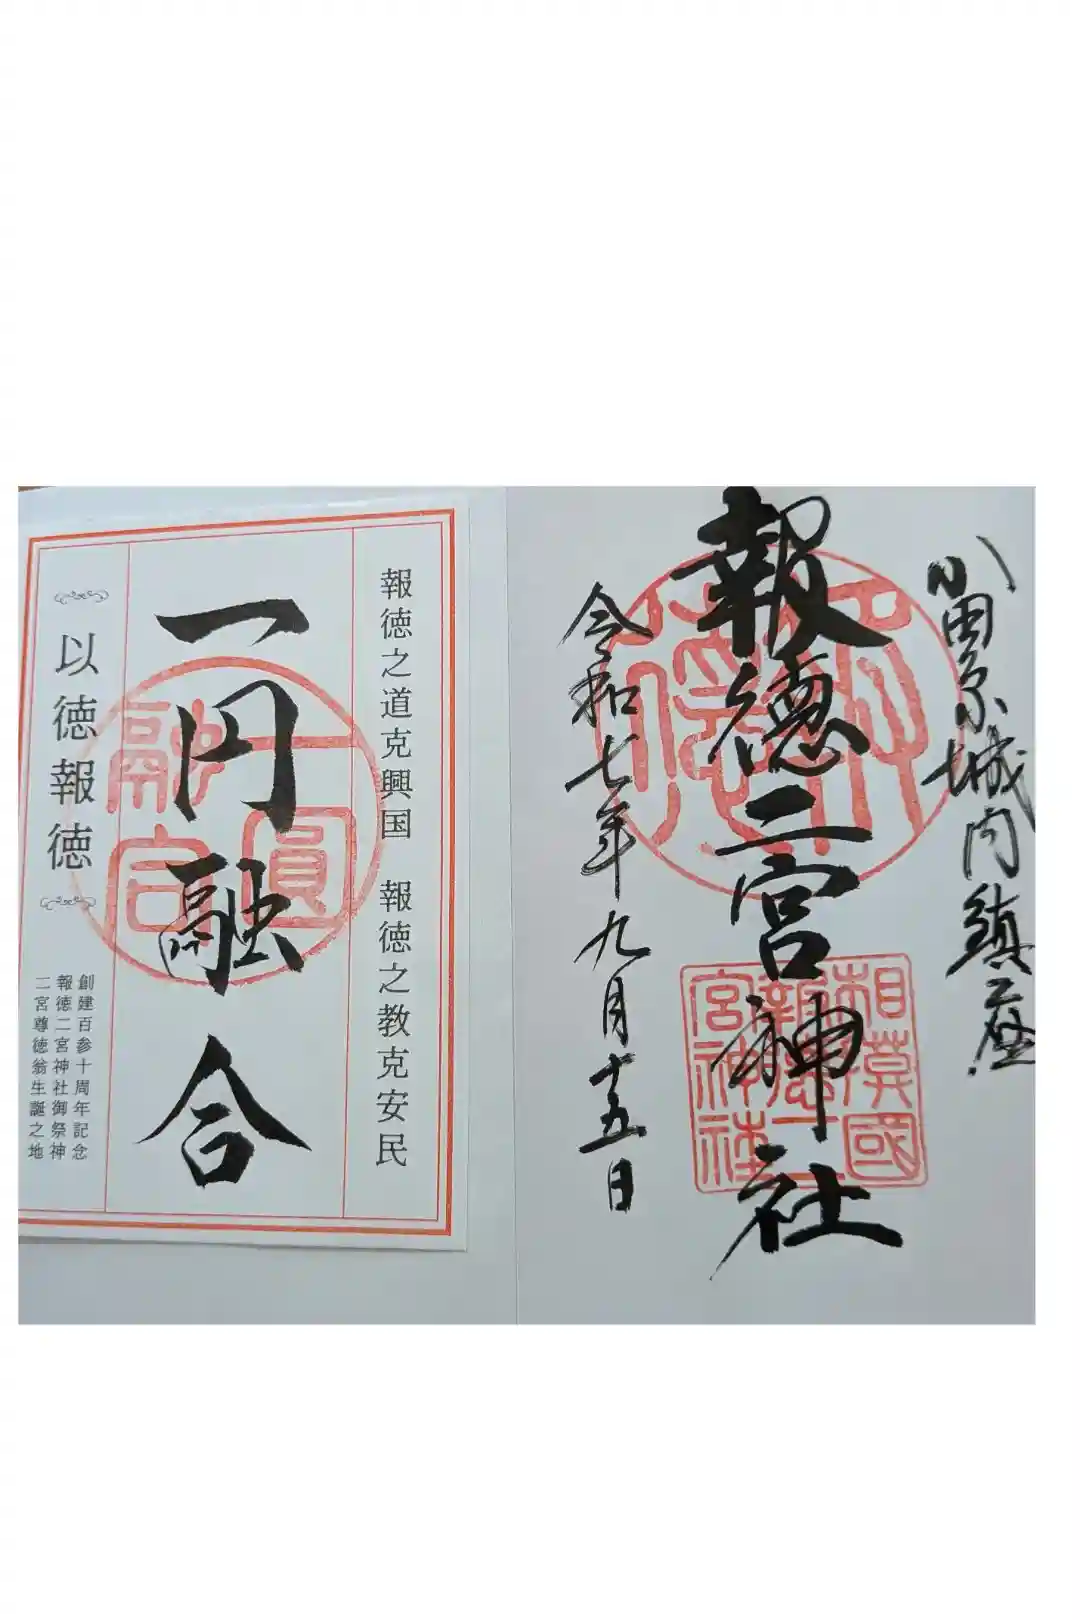 小田原城内鎮座
報徳二宮神社
令和七年九月十五日
相模國
報徳二
宮神社
報徳之道克興国 報徳之教克安民
一円融合
一圓
融合
以徳報徳
創建百参十周年記念
報徳二宮神社御祭神
二宮尊徳翁生誕之地